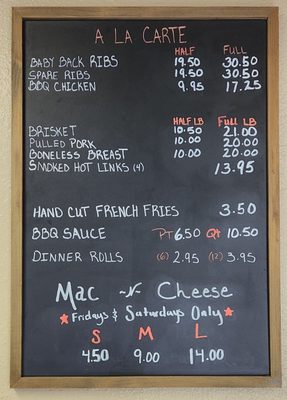 A LA CARTE
HALF FULL
BABY BACK RIBS 19.50 30.50
SPARE RIBS 19.50 30.50
BBQ CHICKEN 9.95 17.25
HALF LB FULL LB
BRISKET 10.50 21.00
PULLED PORK 10.00 20.00
BONELESS BREAST 10.00 20.00
SMOKED HOT LINKS (4) 13.95
HAND CUT FRENCH FRIES 3.50
BBQ SAUCE PT 6.50 QT 10.50
DINNER ROLLS (6) 2.95 (12) 3.95
Mac -N- Cheese
Fridays & Saturdays Only
S M L
4.50 9.00 14.00